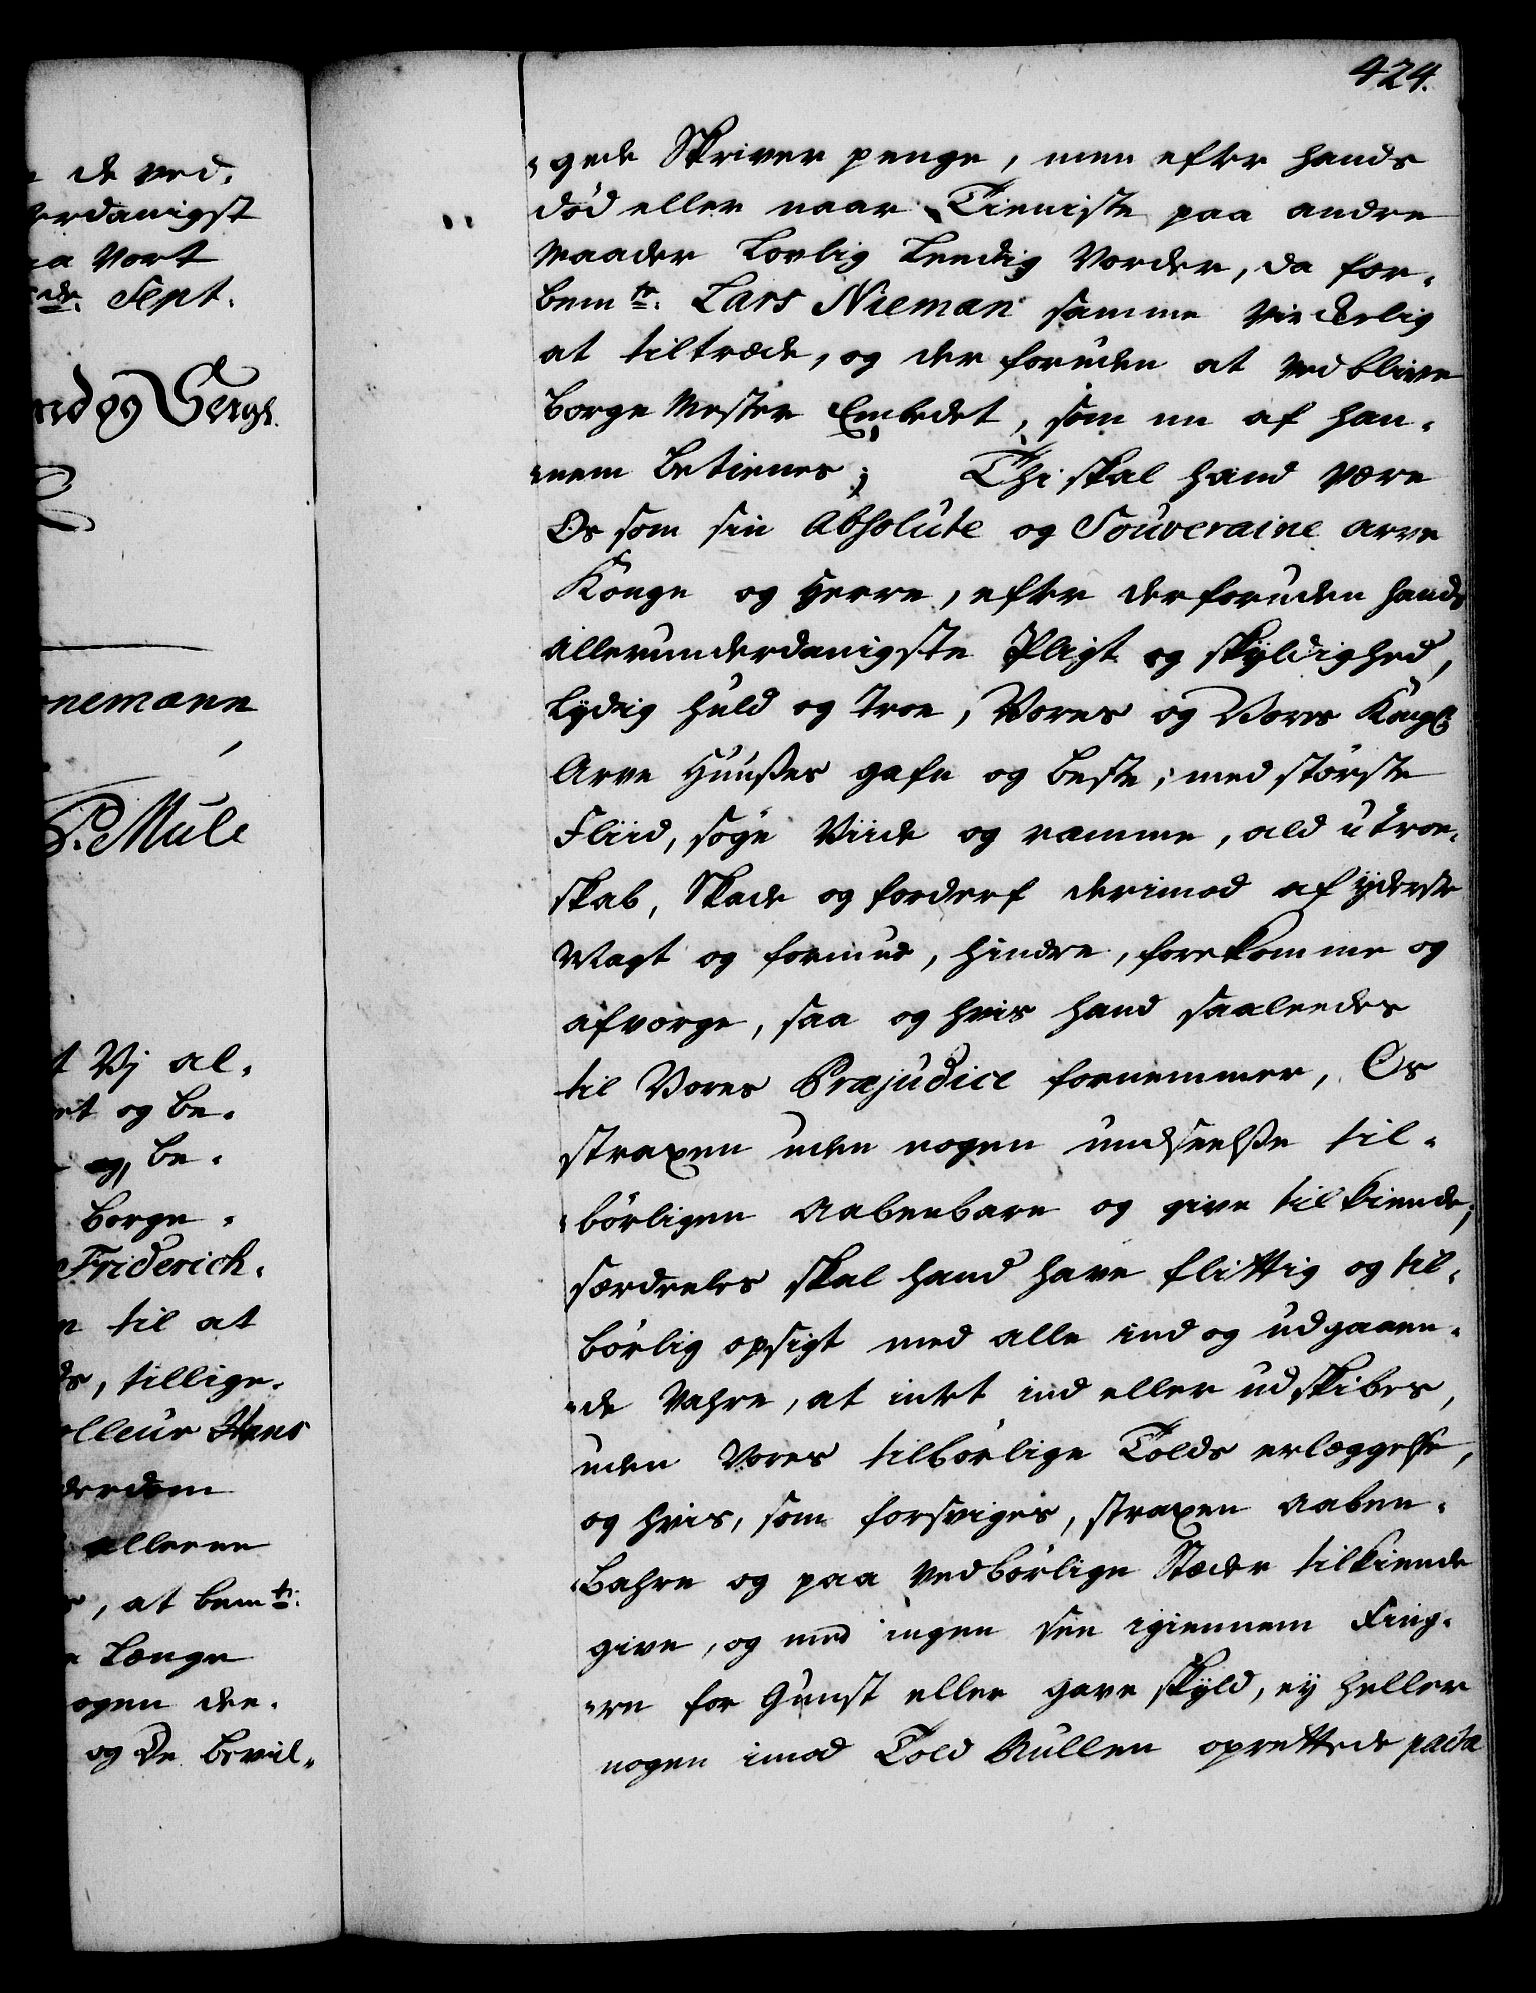 de ved,
erdanigst
aa Vort
de. Sept.
nd og Sergl.
nemann
P. Mule
t Vj al,
et og be,
og, be,
Borge,
Friderich,
n til at
ds, tillige,
olleur Hans
derdom
allerene
, at bemte:
Længe
ogen der,
og De bevil,
424.
,gede Skriver penge, men efter hands
død eller naar Tieniste paa andre
Maader Lovlig Leedig Vorder, da for,
bemte: Lars Nieman samme virckelig
at tiltræde, og der foruden at ved blive
Borge Mester Embedet, som nu af han,
,nem Betienes; Thi skal hand være
Os som sin Absolute og Souveraine arve
Konge og Herre, efter derforuden hands
allerunderdanigste Pligt og skyldighed,
Lydig huld og troe, Vores og Vores Kongl:
Arve Huußes gafn og beste, med største
Fliid, søge Viide og ramme, ald utroe,
skab, Skade og forderf derimod af yderste
Magt og formue, hindre, forekomme og
afværge, saa og hvis hand saaleedes
til Vores Præjudice fornemmer, Os
straxen uden nogen undseelße til,
,børligen Aabenbare og give tilkiende;
særdeeles skal hand have flittig og til,
børlig opsigt med alle ind og udgaaen,
,de Vahre, at intet ind eller udskibes,
uden Vores tilbørlige Tolds erlæggelse,
og hvis, som forsviges, straxen aaben,
,Bahre og paa vedbørlige Stæder tilkiende
give, og med ingen see igiennem Fing,
,re for Gunst eller gave skyld, ey heller
nogen imod Told Rullen oprettede pacta